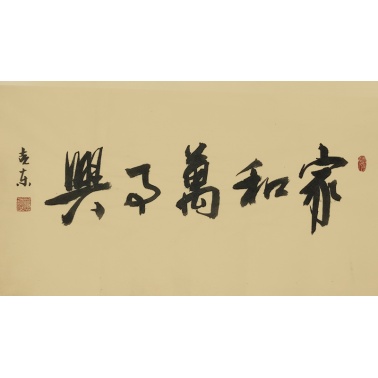 家和萬事興
东